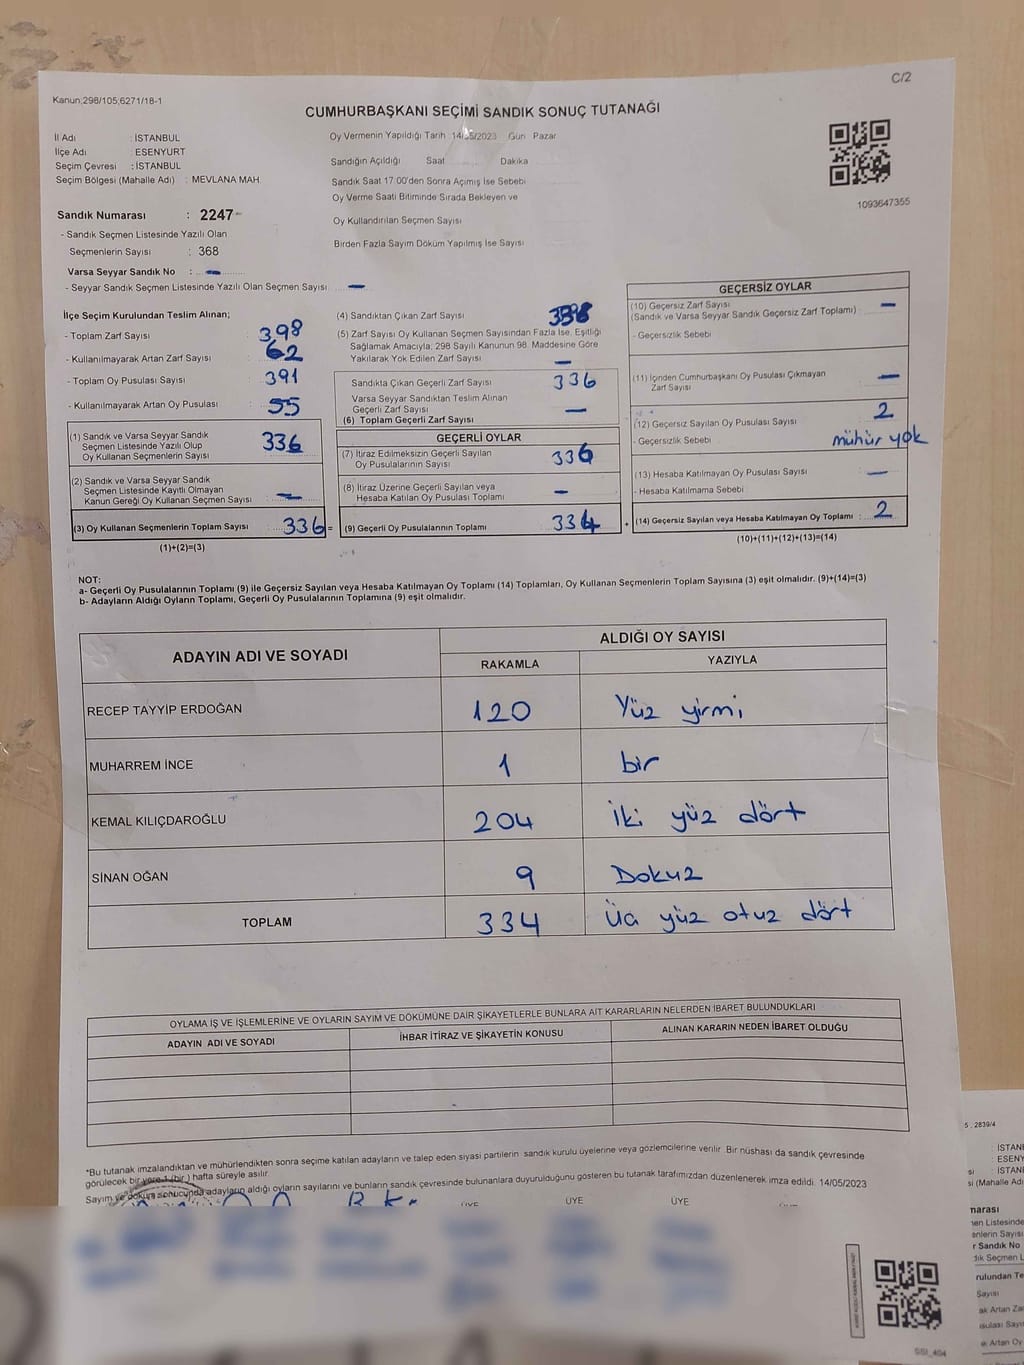 C/2
Kanun;298/105;6271/18-1
CUMHURBAŞKANI SEÇİMİ SANDIK SONUÇ TUTANAĞI
İl Adı : İSTANBUL
İlçe Adı : ESENYURT
Seçim Çevresi : İSTANBUL
Seçim Bölgesi (Mahalle Adı) : MEVLANA MAH.
Oy Vermenin Yapıldığı Tarih 14/05/2023 Gün Pazar
Sandığın Açıldığı Saat Dakika
Sandık Saat 17:00'den Sonra Açımış İse Sebebi
Oy Verme Saati Bitiminde Sırada Bekleyen ve
Oy Kullandırılan Seçmen Sayısı
Birden Fazla Sayım Döküm Yapılmış İse Sayısı
1093647355
Sandık Numarası : 2247
- Sandık Seçmen Listesinde Yazılı Olan
Seçmenlerin Sayısı : 368
Varsa Seyyar Sandık No : —
- Seyyar Sandık Seçmen Listesinde Yazılı Olan Seçmen Sayısı —
İlçe Seçim Kurulundan Teslim Alınan;
- Toplam Zarf Sayısı 398
- Kullanılmayarak Artan Zarf Sayısı : 62
- Toplam Oy Pusulası Sayısı : 391
- Kullanılmayarak Artan Oy Pusulası : 55
(1) Sandık ve Varsa Seyyar Sandık
Seçmen Listesinde Yazılı Olup
Oy Kullanan Seçmenlerin Sayısı : 336
(2) Sandık ve Varsa Seyyar Sandık
Seçmen Listesinde Kayıtlı Olmayan
Kanun Gereği Oy Kullanan Seçmen Sayısı : —
(3) Oy Kullanan Seçmenlerin Toplam Sayısı : 336 =
(1)+(2)=(3)
(4) Sandıktan Çıkan Zarf Sayısı
(5) Zarf Sayısı Oy Kullanan Seçmen Sayısından Fazla İse, Eşitliği
Sağlamak Amacıyla; 298 Sayılı Kanunun 98. Maddesine Göre
Yakılarak Yok Edilen Zarf Sayısı —
Sandıkta Çıkan Geçerli Zarf Sayısı 336
Varsa Seyyar Sandıktan Teslim Alınan
Geçerli Zarf Sayısı —
(6) Toplam Geçerli Zarf Sayısı
GEÇERLİ OYLAR
(7) İtiraz Edilmeksizin Geçerli Sayılan
Oy Pusulalarının Sayısı : 336
(8) İtiraz Üzerine Geçerli Sayılan veya
Hesaba Katılan Oy Pusulası Toplamı : —
(9) Geçerli Oy Pusulalarının Toplamı : 334 +
GEÇERSİZ OYLAR
(10) Geçersiz Zarf Sayısı —
(Sandık ve Varsa Seyyar Sandık Geçersiz Zarf Toplamı) :
- Geçersizlik Sebebi
(11) İçinden Cumhurbaşkanı Oy Pusulası Çıkmayan
Zarf Sayısı —
(12) Geçersiz Sayılan Oy Pusulası Sayısı 2
- Geçersizlik Sebebi mühür yok
(13) Hesaba Katılmayan Oy Pusulası Sayısı : —
- Hesaba Katılmama Sebebi
(14) Geçersiz Sayılan veya Hesaba Katılmayan Oy Toplamı : 2
(10)+(11)+(12)+(13)=(14)
NOT:
a- Geçerli Oy Pusulalarının Toplamı (9) ile Geçersiz Sayılan veya Hesaba Katılmayan Oy Toplamı (14) Toplamları, Oy Kullanan Seçmenlerin Toplam Sayısına (3) eşit olmalıdır. (9)+(14)=(3)
b- Adayların Aldığı Oyların Toplamı, Geçerli Oy Pusulalarının Toplamına (9) eşit olmalıdır.
ADAYIN ADI VE SOYADI ALDIĞI OY SAYISI
RAKAMLA YAZIYLA
RECEP TAYYİP ERDOĞAN 120 Yüz yirmi
MUHARREM İNCE 1 bir
KEMAL KILIÇDAROĞLU 204 İki yüz dört
SİNAN OĞAN 9 Dokuz
TOPLAM 334 Üç yüz otuz dört
OYLAMA İŞ VE İŞLEMLERİNE VE OYLARIN SAYIM VE DÖKÜMÜNE DAİR ŞİKAYETLERLE BUNLARA AİT KARARLARIN NELERDEN İBARET BULUNDUKLARI
ADAYIN ADI VE SOYADI İHBAR İTİRAZ VE ŞİKAYETİN KONUSU ALINAN KARARIN NEDEN İBARET OLDUĞU
*Bu tutanak imzalandıktan ve mühürlendikten sonra seçime katılan adayların ve talep eden siyasi partilerin sandık kurulu üyelerine veya gözlemcilerine verilir. Bir nüshası da sandık çevresinde
görülecek bir yere 1 (bir) hafta süreyle asılır.
Sayım ve döküm sonucunda adayların aldığı oyların sayılarını ve bunların sandık çevresinde bulunanlara duyurulduğunu gösteren bu tutanak tarafımızdan düzenlenerek imza edildi. 14/05/2023
ÜYE ÜYE ÜYE
SSI_404
5 . 2839/4
: İSTAN
: ESENY
: İSTAN
si (Mahalle Adı
narası
nen Listesinde
enlerin Sayısı
r Sandık No
dık Seçmen L
rulundan Te
Sayısı
ak Artan Za
usulası Sayı
Artan Oy